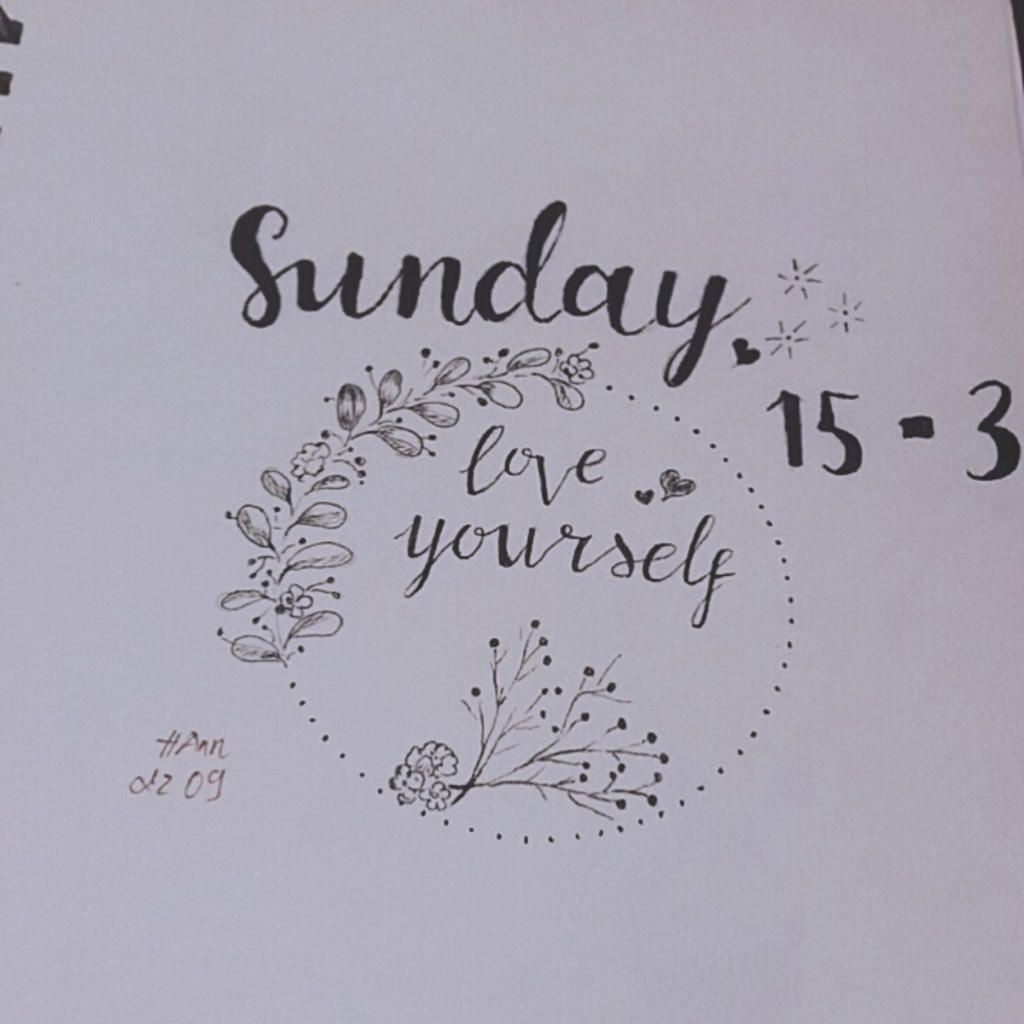 Sunday
15 - 3
love
yourself
#Ann
22 09